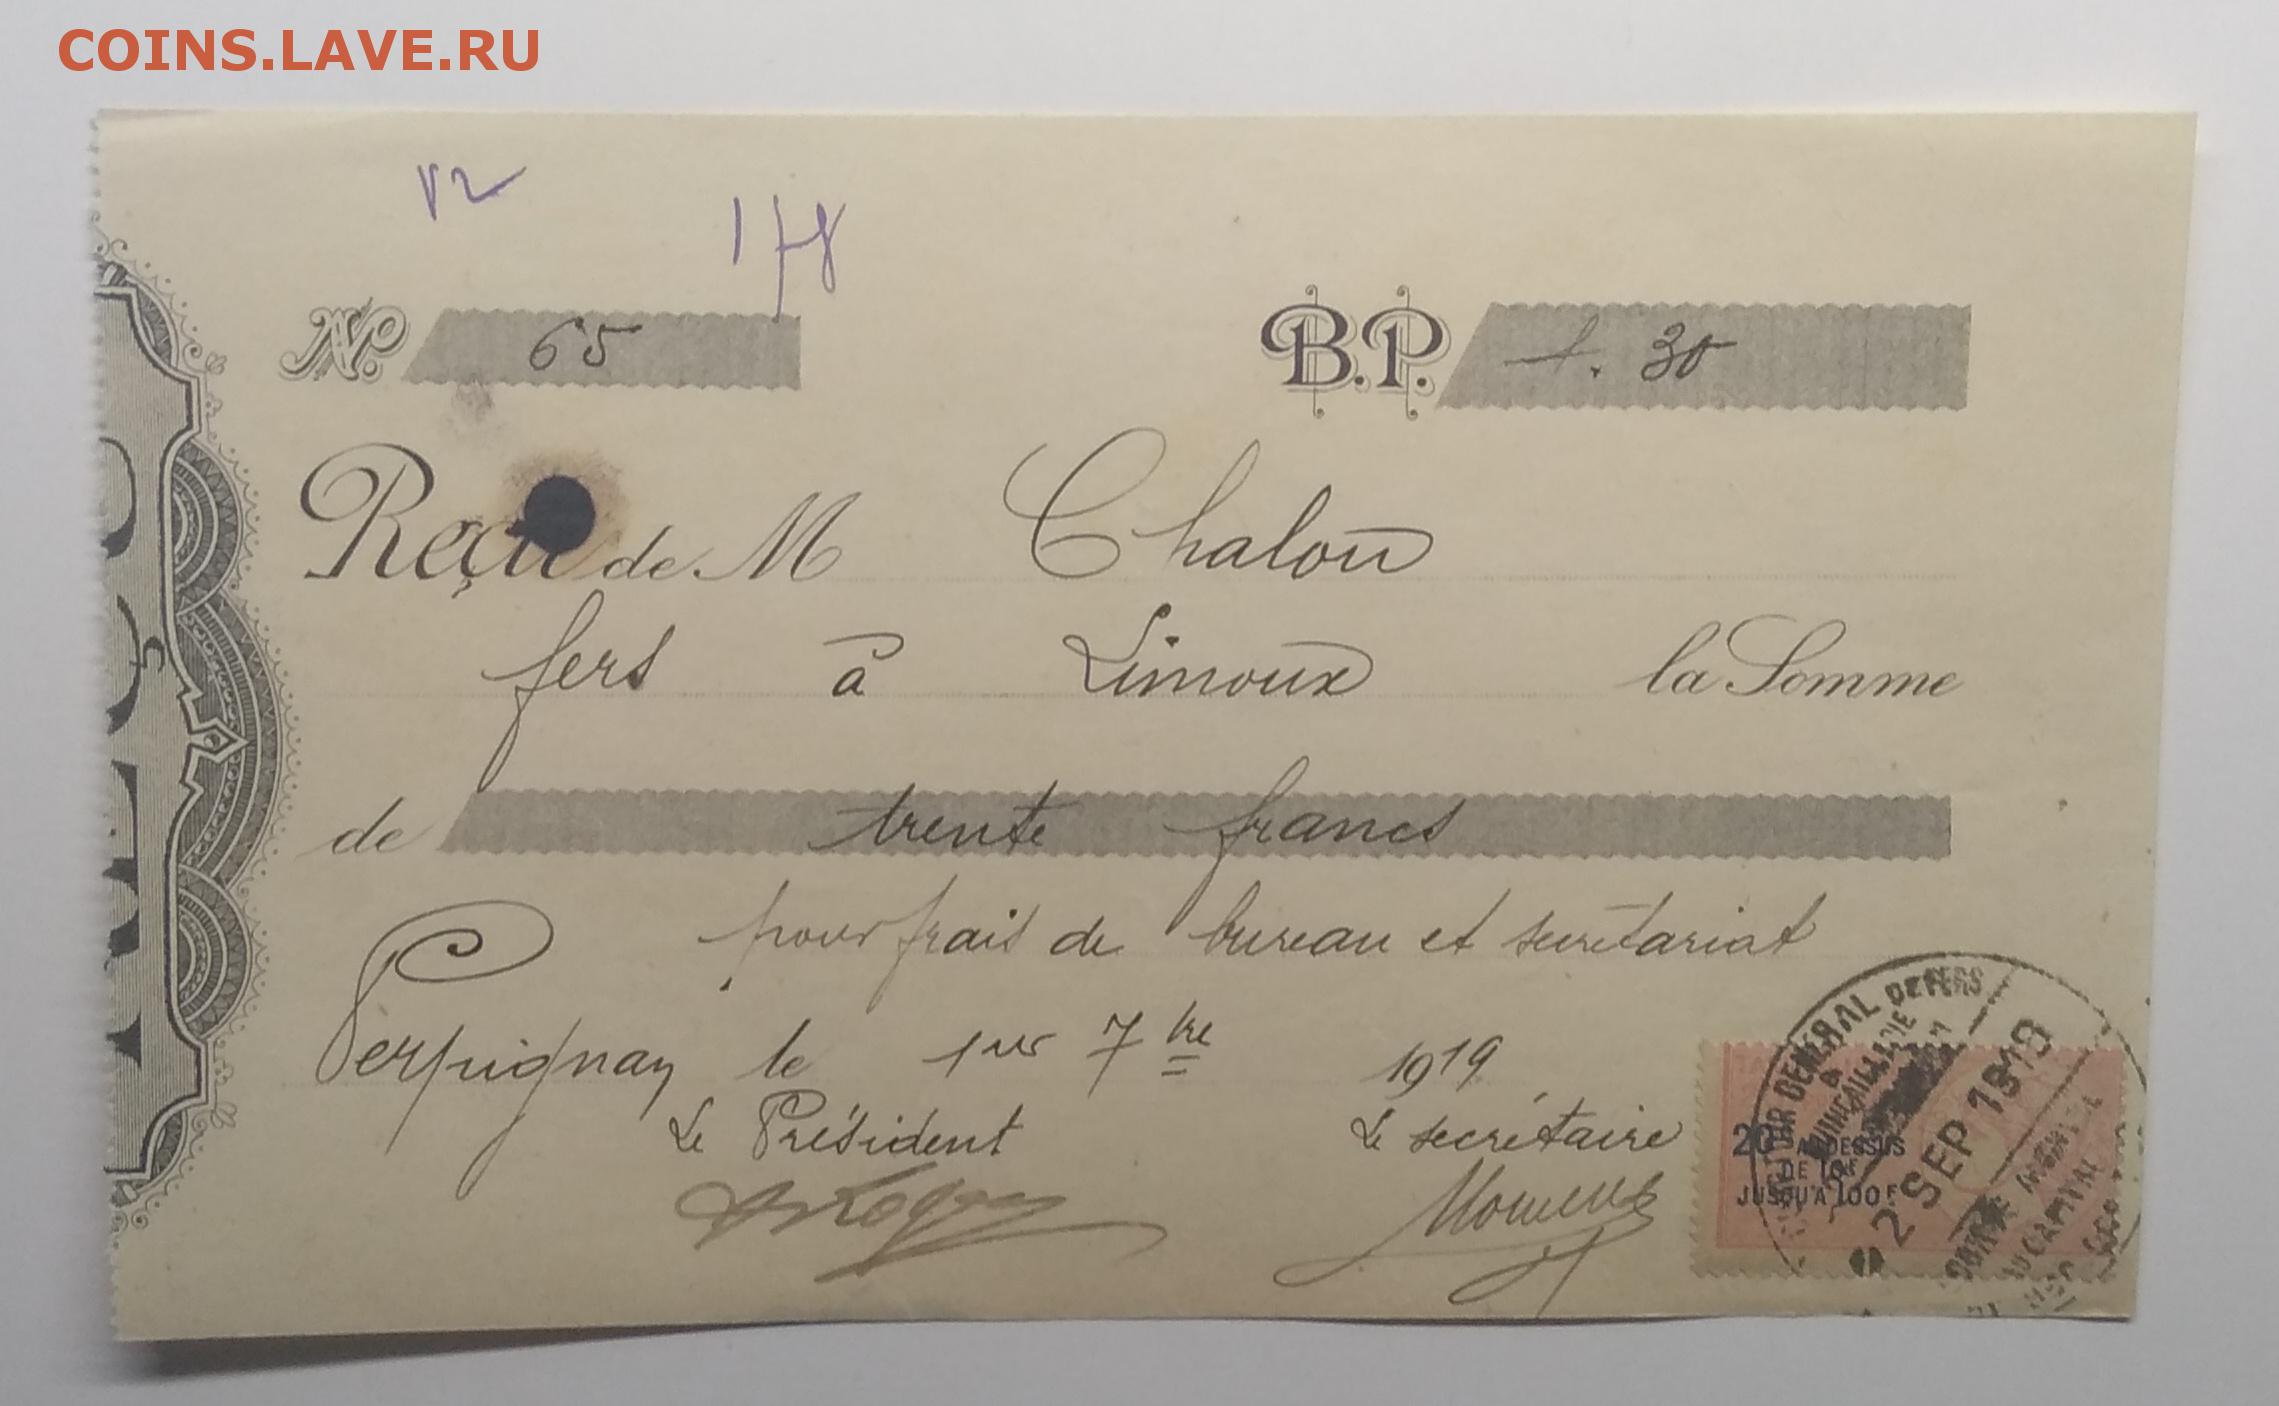 COINS.LAVE.RU
V2
178
No. 65
B.P. f. 30
Reçu de M Chalou
fers à Limoux la Somme
de trente francs
pour frais de bureau et secrétariat
Perpignan le 1er 7bre 1919
Le Président
Le secrétaire
GENERAL DE FERS
& QUINCAILLERIE
20c AU DESSUS
DE 10F
JUSQU'A 100F
2 SEP 1919
AU CAPITAL